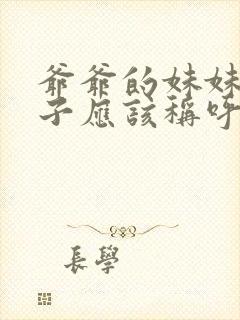 爺爺的妹妹
子應該稱呼
長學